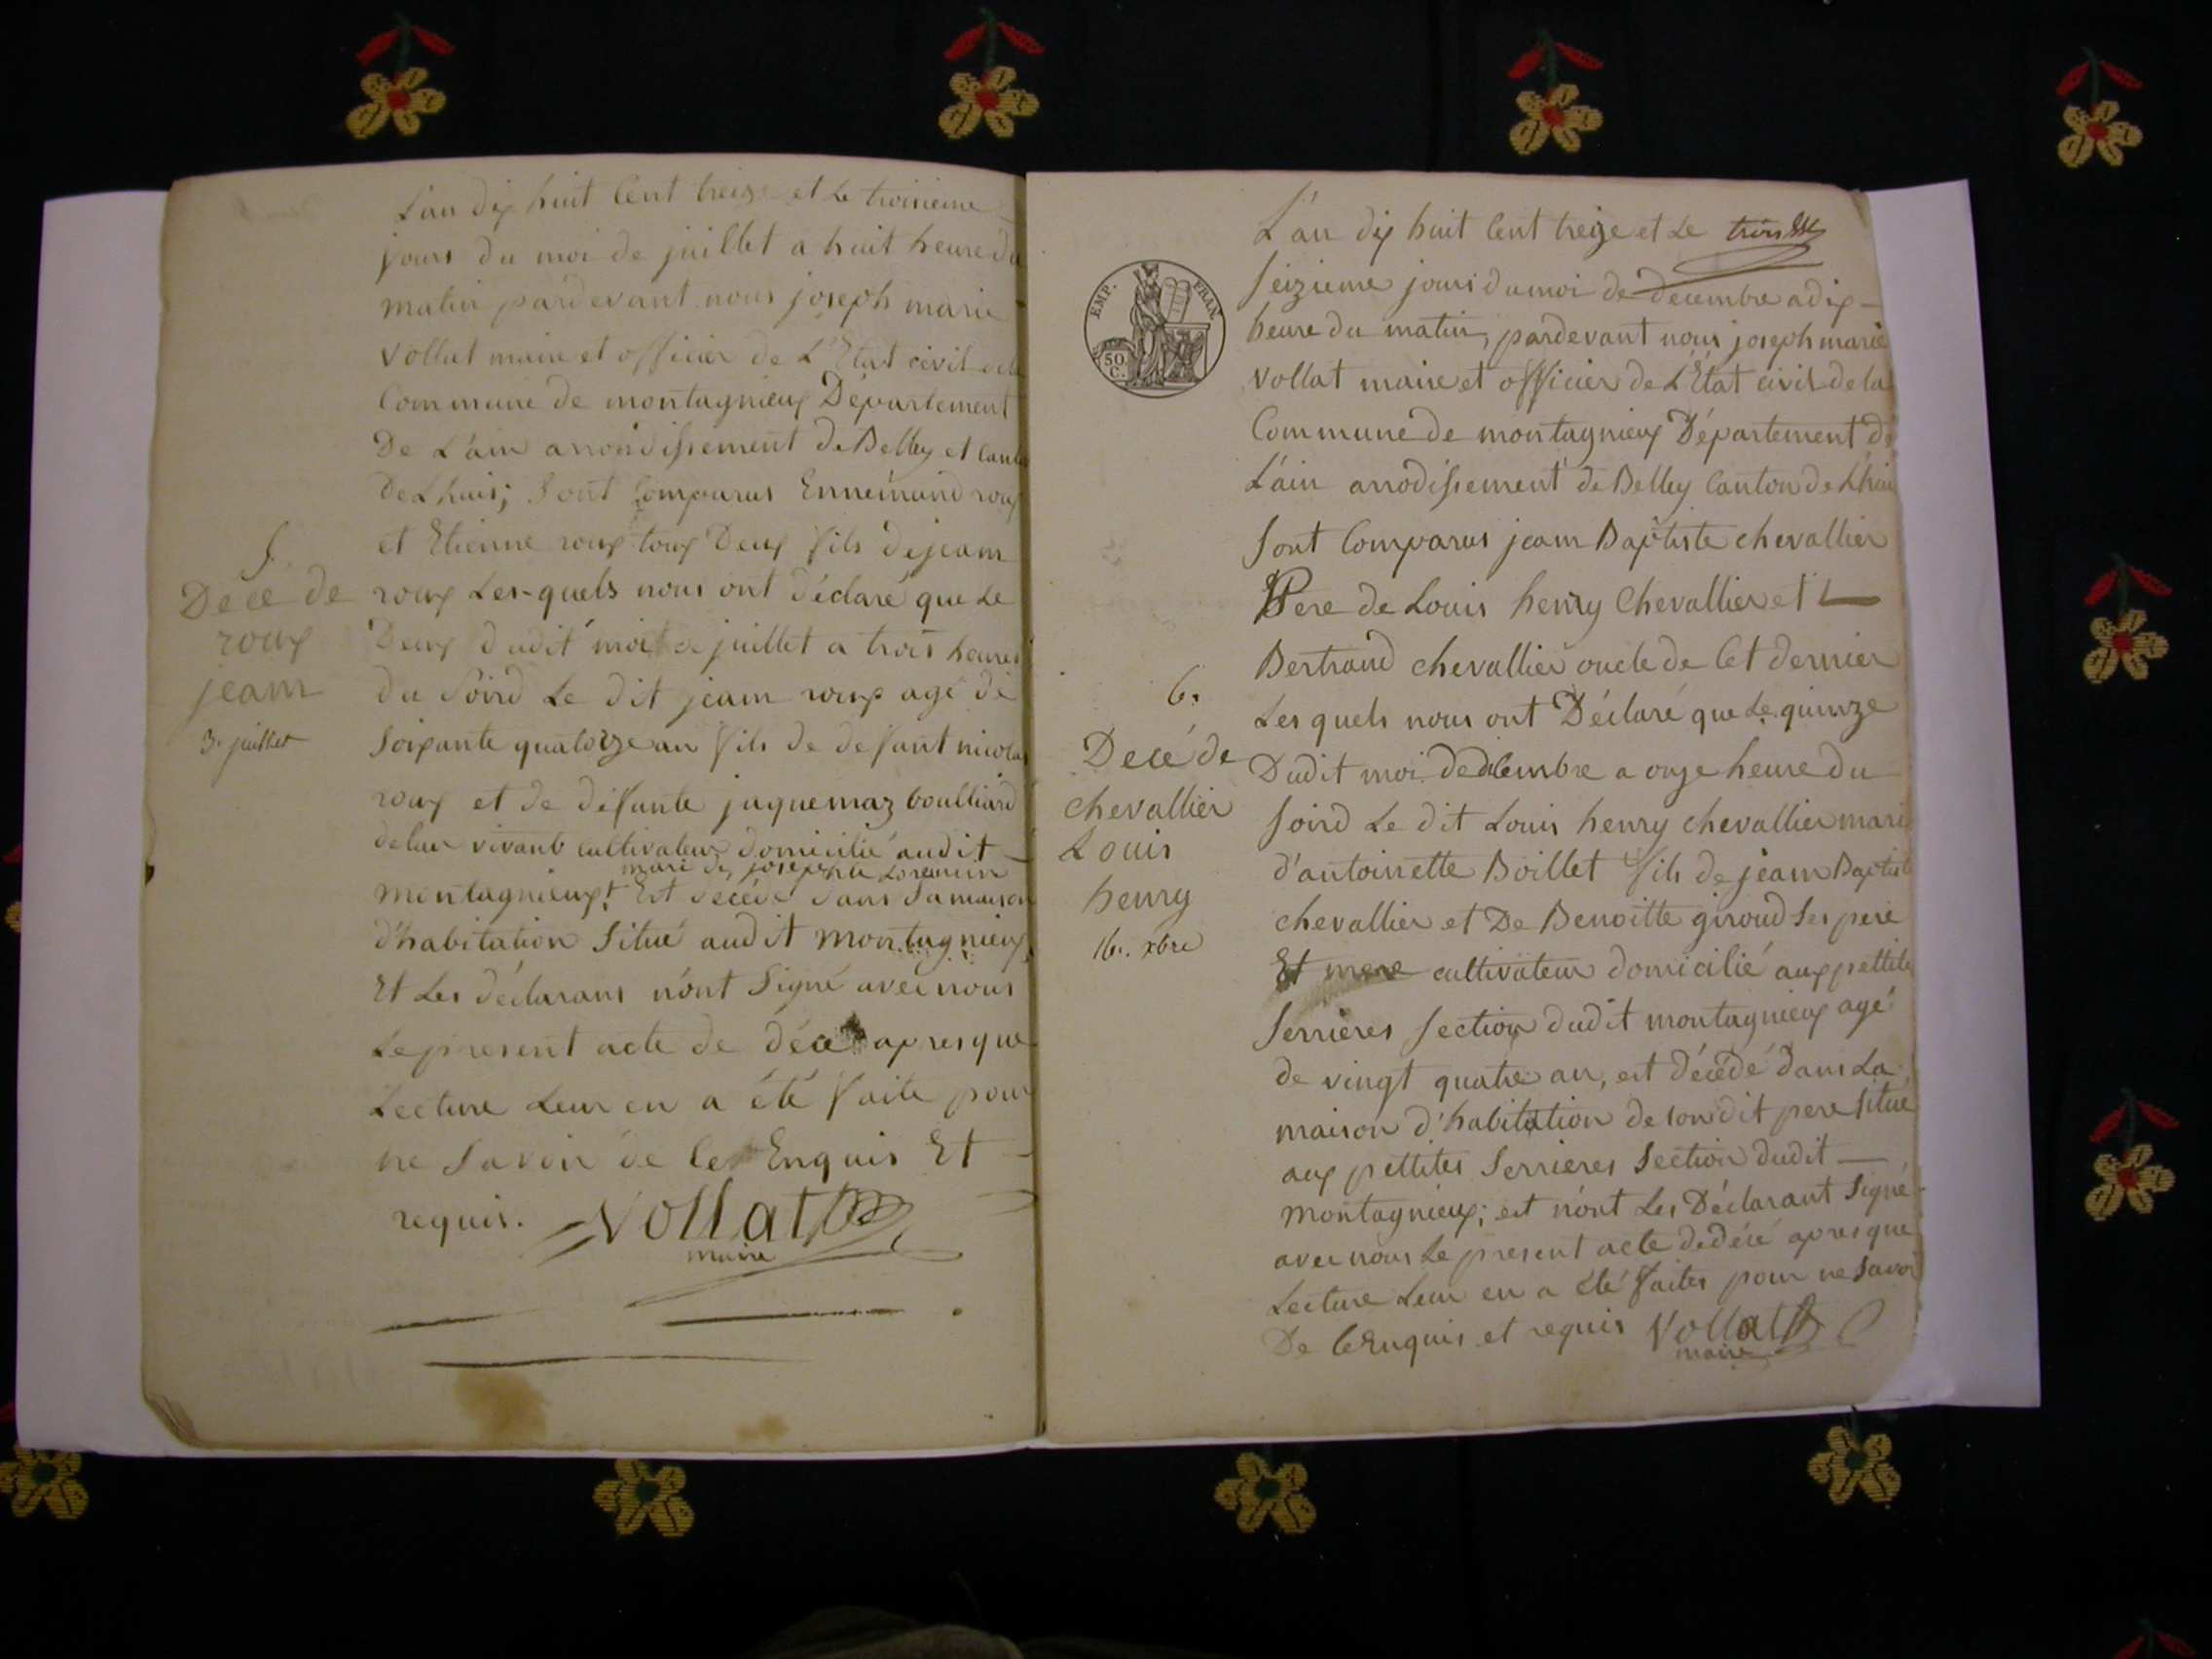 L'an dix huit Cent treize et Le troisieme
jours du moi de juillet a huit heure du
matin pardevant nous joseph marie
Vollat maire et officier de L'Etat civil de la
Commune de montagnieux Département
De L'ain arrondissement de Belley et Canton
De Lhuis; Sont Comparus Ennemund roux
et Etienne roux toux Deux fils de jeam
roux Les-quels nous ont déclaré que Le
Deux dudit moi de juillet a trois heures
du Soird Le dit jeam roux agé de
Soixante quatorze an fils de defunt nicolas
roux et de défunte jaquemaz boulliard
de leur vivant cultivateur domicilié audit
mari de josephte
montagnieux. Est décédé dans Sa maison
d'habitation Situé audit montagnieux
Et Les déclarans n'ont Signé avec nous
Le present acte de décé apres que
Lecture Leur en a été faite pour
ne Savoir de ce Enquis Et
requis. Vollat
maire
5.
Décé de
roux
jeam
3. juillet
L'an dix huit Cent treize et Le
Seizieme jours du moi de decembre a dix
heure du matin, pardevant nous joseph marie
Vollat maire et officier de L'État civil de la
Commune de montagnieux Département de
L'ain arrodissement de Belley Canton de Lhuis
Sont Comparus jeam Baptiste chevallier
Pere de Louis henry Chevallier et
Bertrand chevallier oucle de Cet dernier
Les quels nous ont Déclaré que Le quinze
Dudit moi de decembre a onze heure du
Soird Le dit Louis henry chevallier mari
d'antoinette Boillet fils de jeam Baptiste
chevallier et De Benoitte giroud Ses pere
Et mere cultivateur domicilié aux pettites
Serrieres Section dudit montagnieux agé
de vingt quatre an, est décédé dans La
maison d'habitation de son dit pere Situé
aux pettites Serrieres Section dudit
montagnieux; est n'ont Les Déclarant Signé
avec nous Le present acte de décé apres que
Lecture Leur en a été faites pour ne Savoi
De ce Enquis et requis Vollat
maire
EMP. FRAN.
50
C.
6.
Decé de
chevallier
Louis
henry
16. xbre